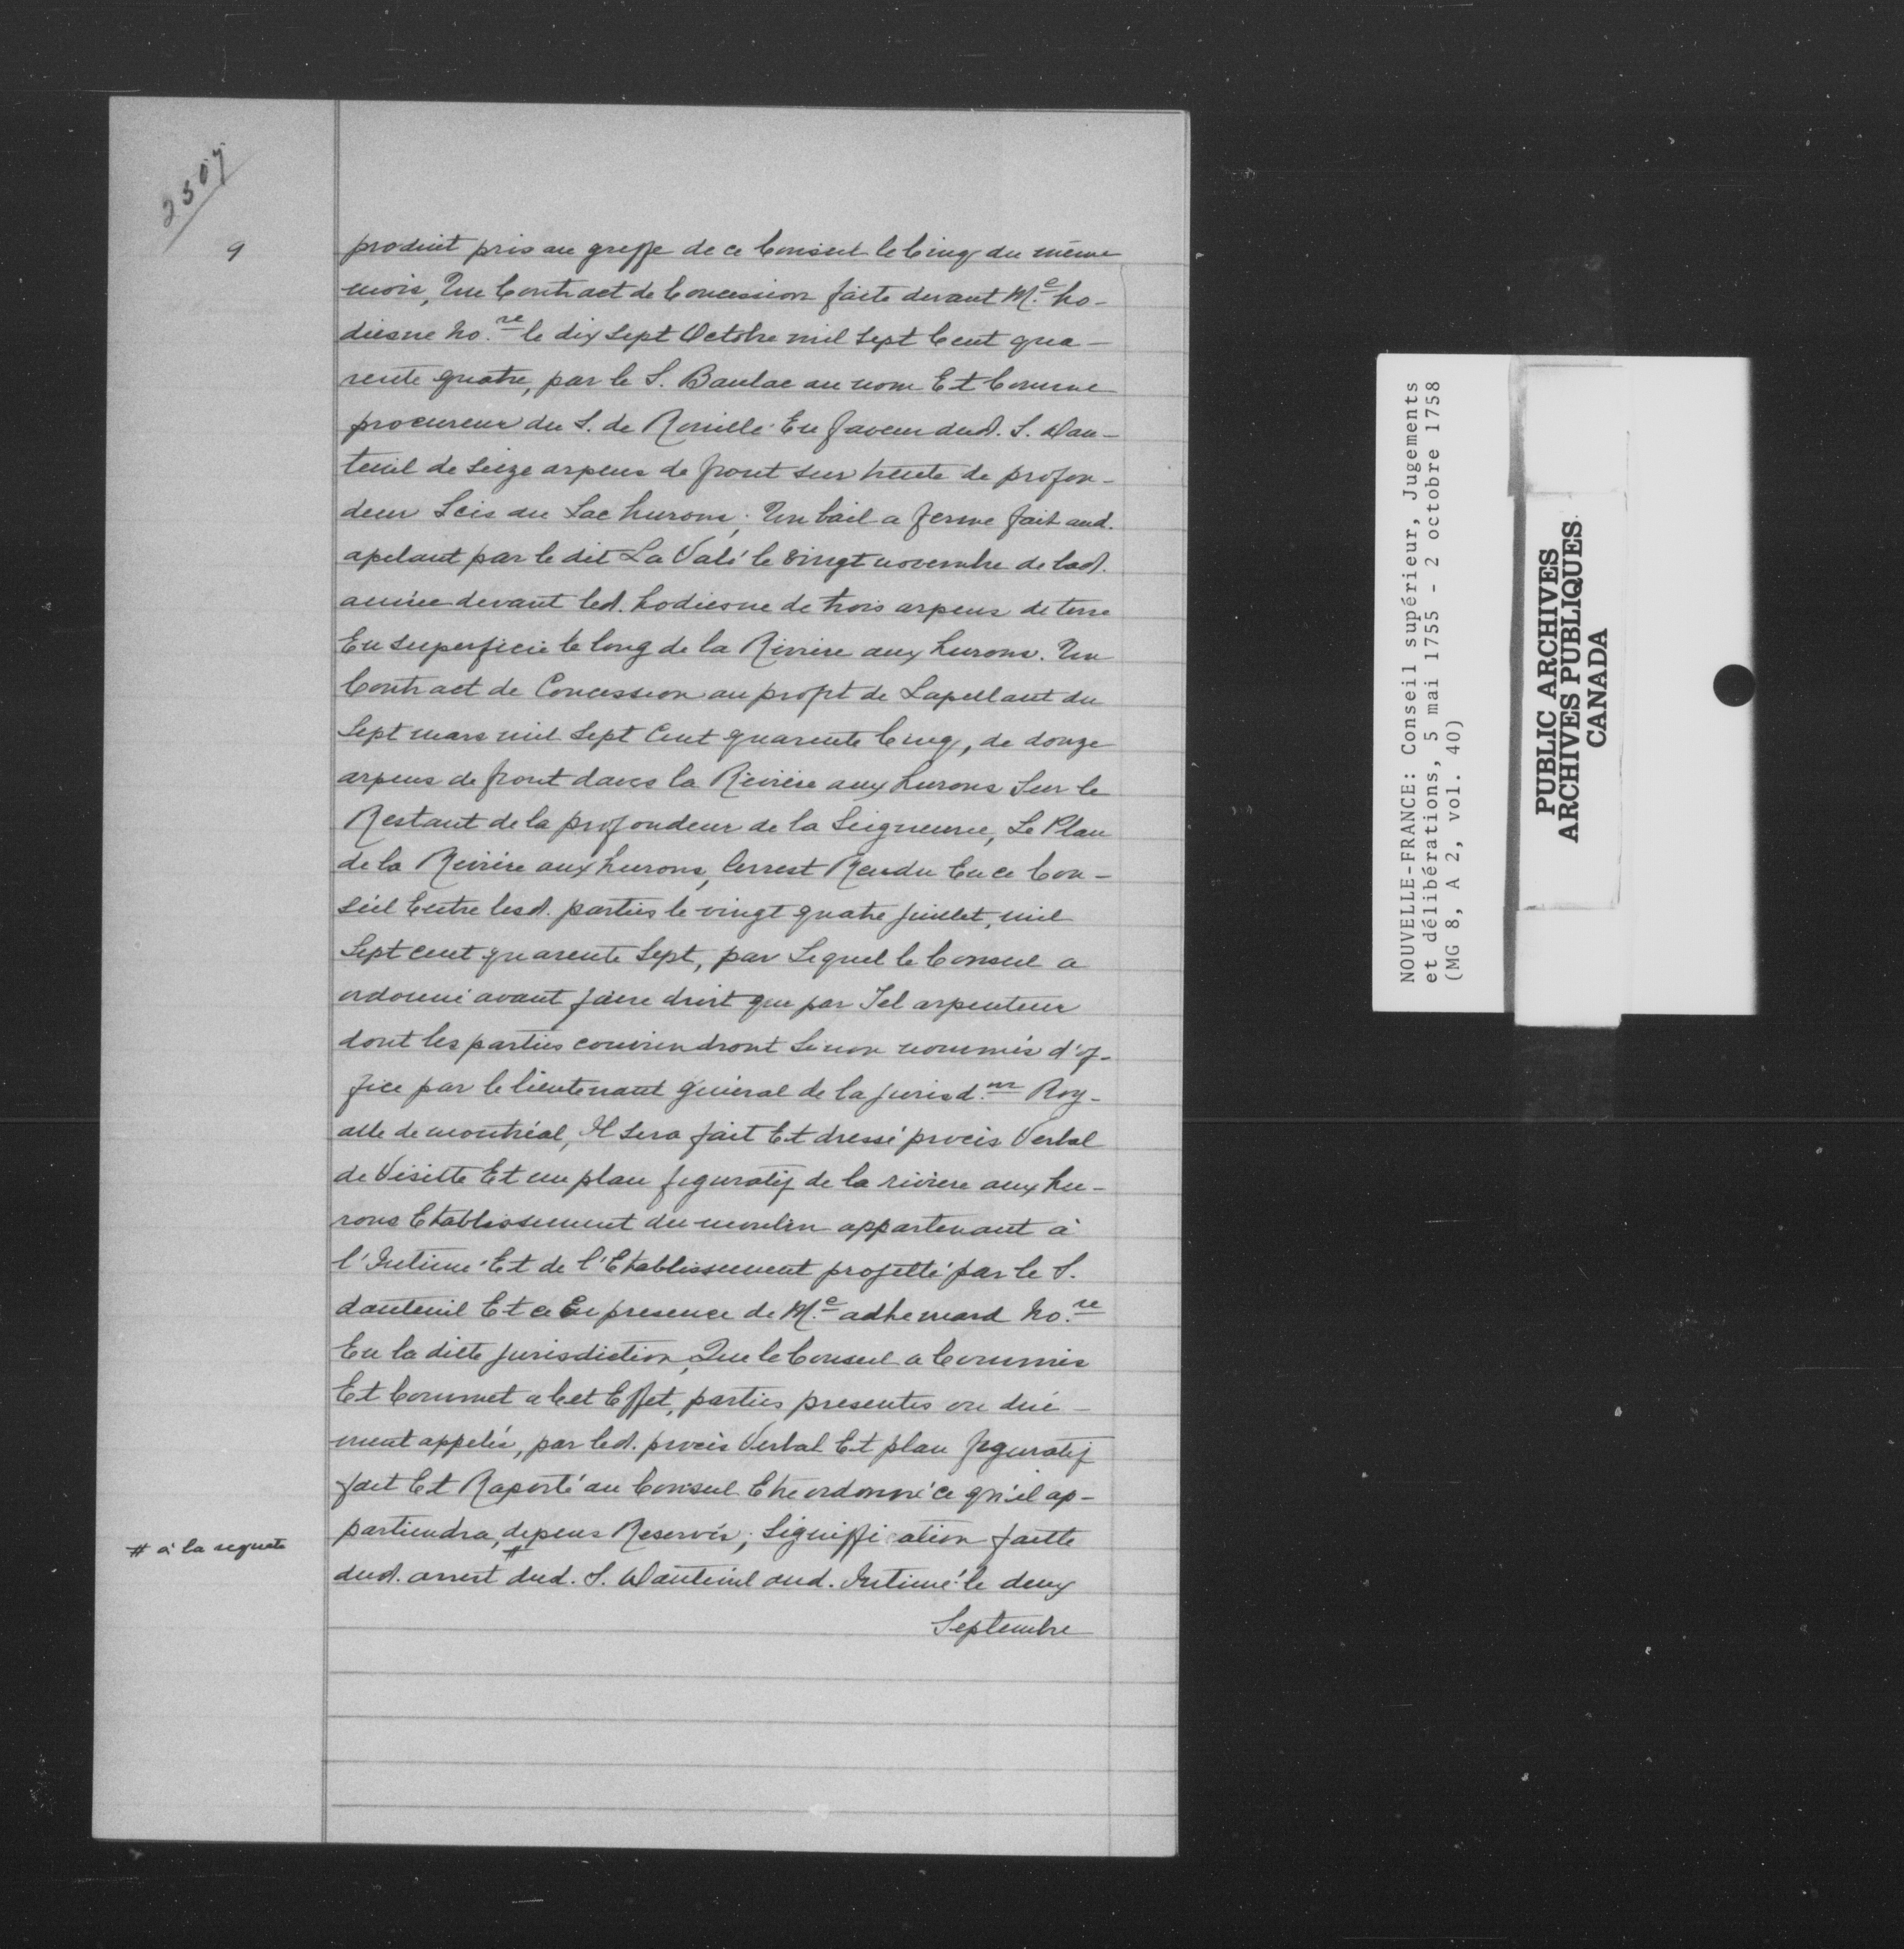 2507
9
produit pris au greffe de ce Conseil le Cinq du même
mois, Un Contract de Concession faite devant M.e ho-
diesne no.re le dix sept Octobre mil sept Cent qua-
rente quatre, par le S. Baulac au nom Et Comme
procureur du S. de Rouille En faveur dud. S. Dau-
teuil de Seize arpens de front sur trente de profon-
deur Scis au Lac hurons; Un bail a ferme fait aud.
apelant par le dit La Valé le vingt novembre de lad.
année devant led. hodiesne de trois arpens de terre
En superficie le long de la Riviere aux hurons. Un
Contract de Concession au profit de Lapellant du
Sept mars mil Sept Cent quarente Cinq, de douze
arpens de front dans la Rivière aux hurons Sur le
Restant de la profondeur de la Seigneurie, Le Plan
de la Rivière aux hurons, larrest Rendu En ce Con-
seil Entre lesd. parties le vingt quatre juillet, mil
Sept cent quarente Sept, par Lequel le Conseil a
ordonné avant faire droit que par Tel arpenteur
dont les parties conviendront Sinon nommés d'of-
fice par le lieutenant général de la jurisd.on Roy-
alle de montréal, Il sera fait Et dressé procès Verbal
de Visitte Et un plan figuratif de la riviere aux hu-
rons Etablissement du moulin appartenant à
l'Intimé Et de l'Etablissement projetté par le S.
dauteuil Et ce En presence de M.e adhemard no.re
En la ditte jurisdiction, Que le Conseil a Commis
Et Commet a Cet Effet, parties presentes ou due-
ment appelés, par led. procès Verbal Et plan figuratif
fait Et Raporté au Conseil Etre ordonné ce qu'il ap-
partiendra, depens Reservés; Signiffication faitte
# à la requete
dud. arrest # dud. S. Dauteuil aud. Intimé le deux
Septembre
NOUVELLE-FRANCE: Conseil supérieur, Jugements
et délibérations, 5 mai 1755 - 2 octobre 1758
(MG 8, A 2, vol. 40)
PUBLIC ARCHIVES
ARCHIVES PUBLIQUES
CANADA